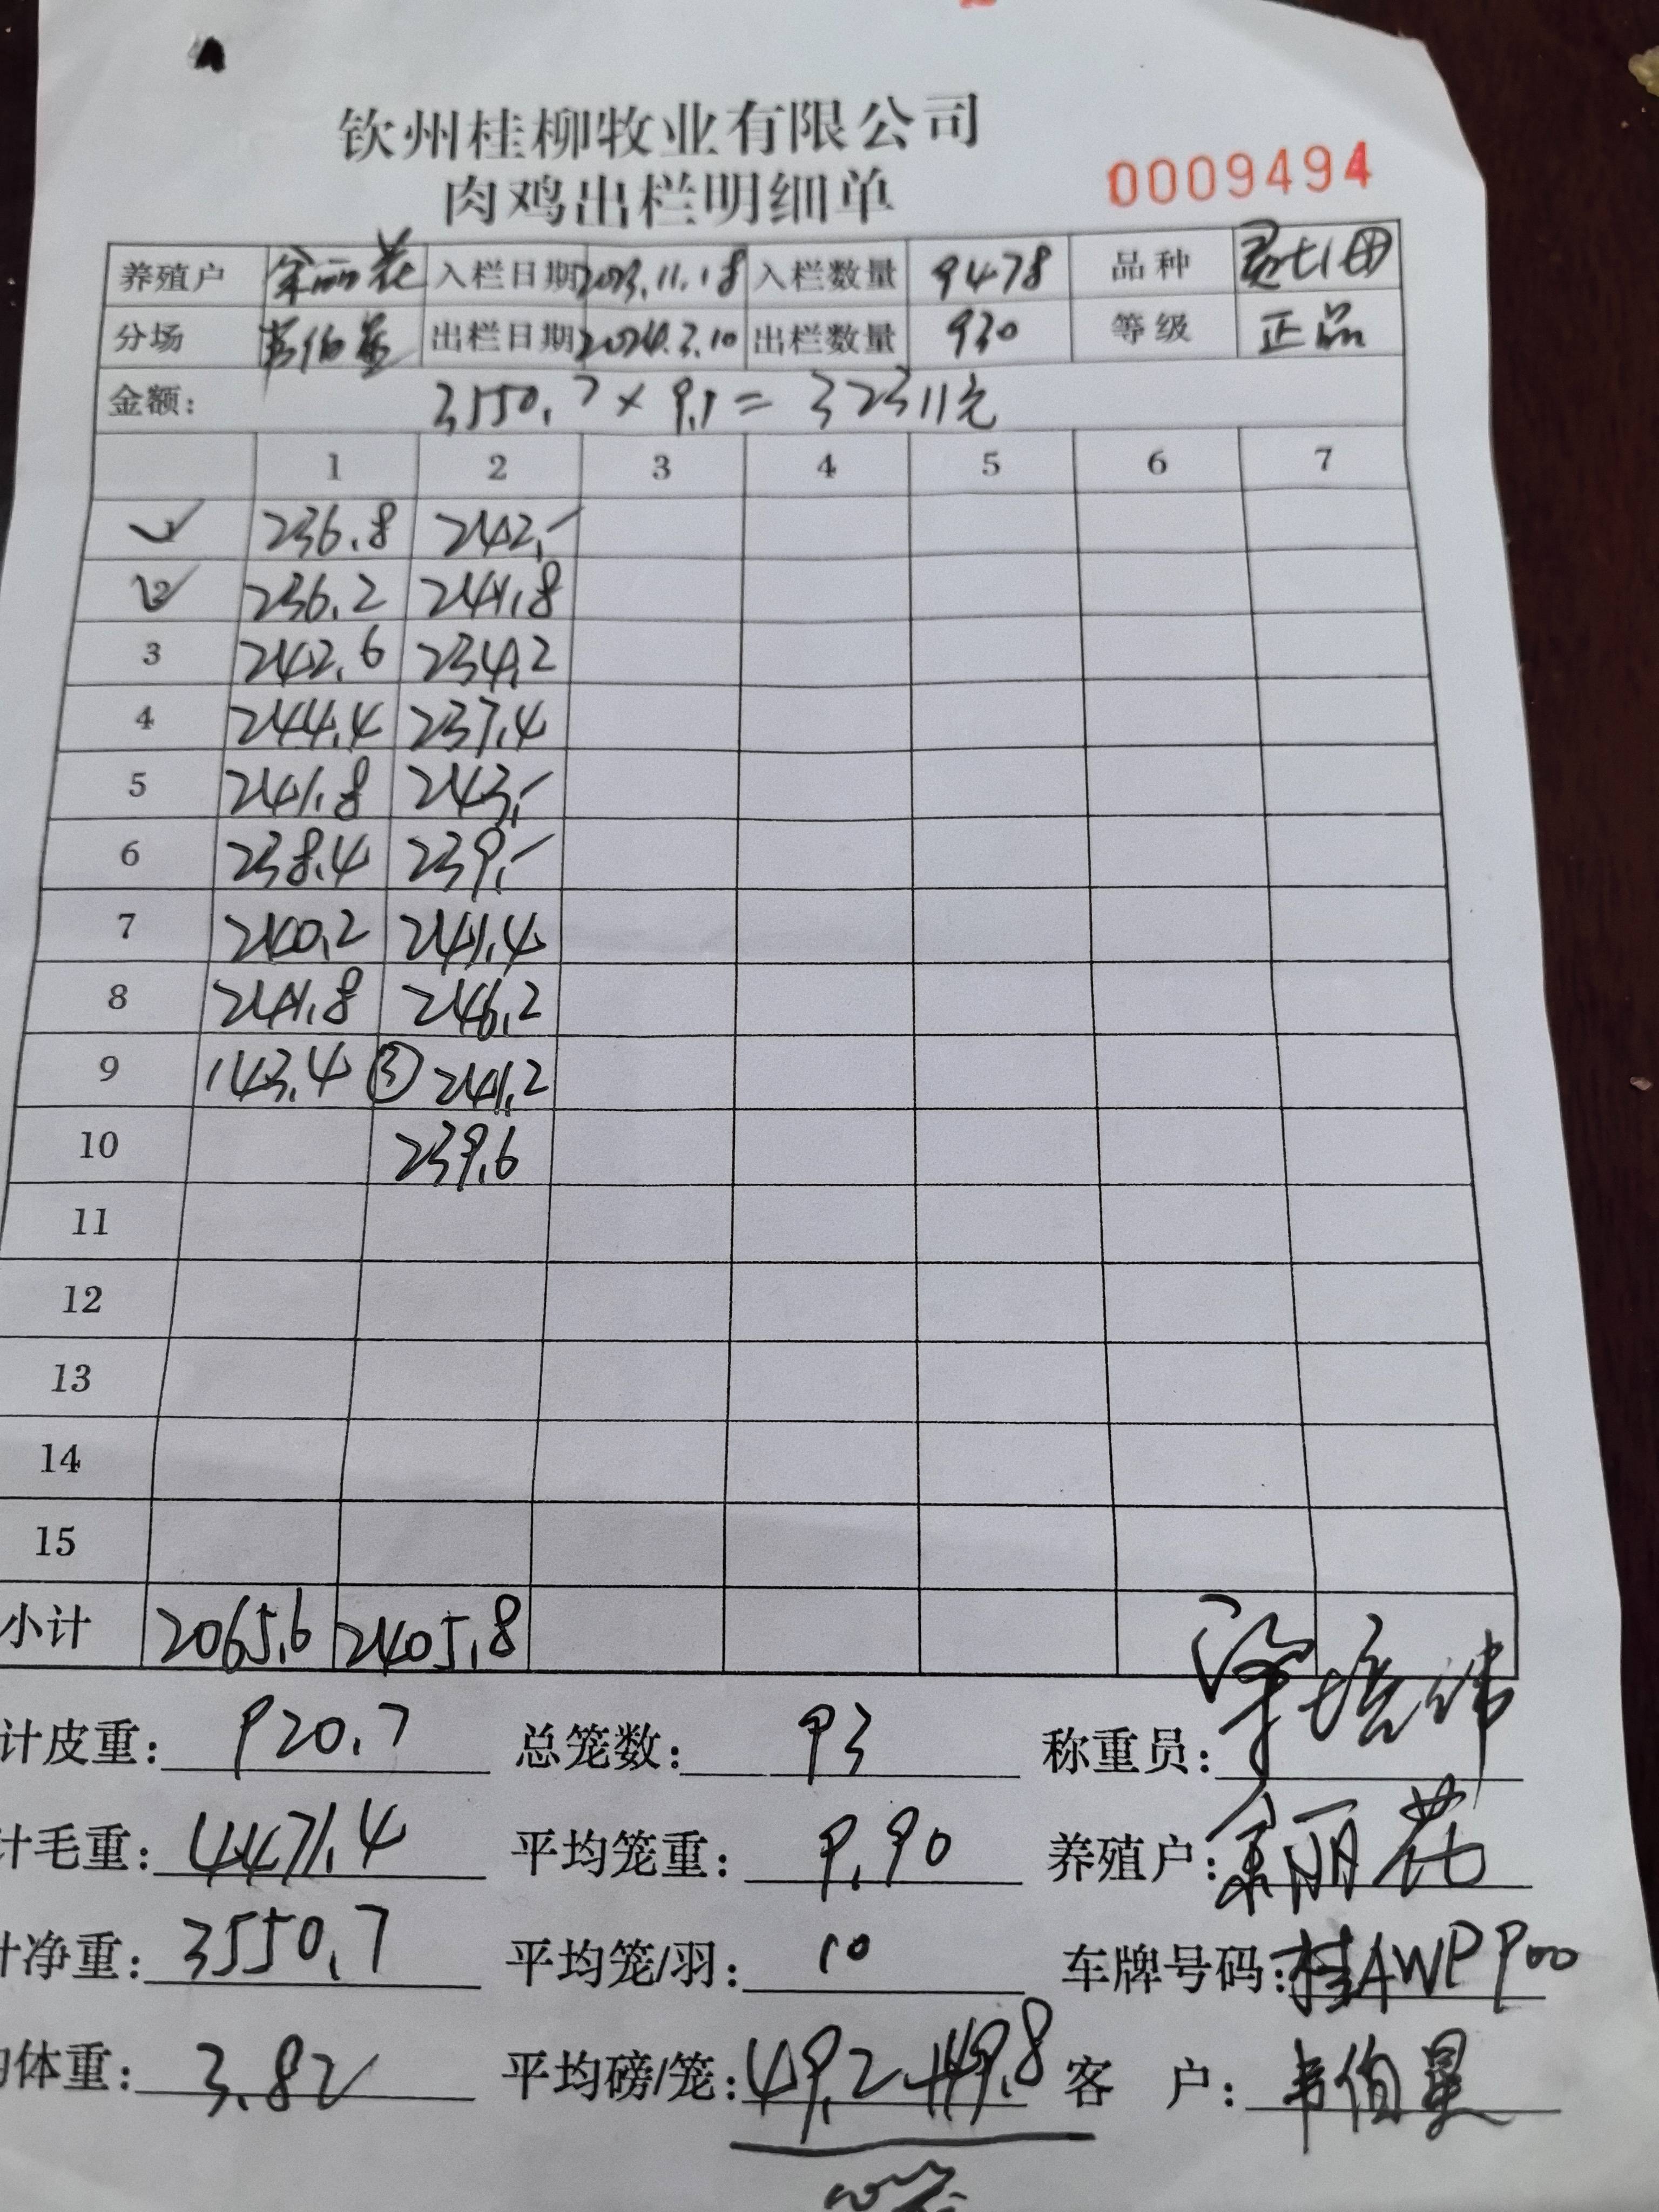 钦州桂柳牧业有限公司
肉鸡出栏明细单 0009494
养殖户 余丽花 入栏日期 2023.11.18 入栏数量 9478 品种
分场 韦伯星 出栏日期 2024.3.10 出栏数量 930 等级 正品
金额: 3550.7×9.1=32311元
1 2 3 4 5 6 7
1 236.8 242.-
2 236.2 241.8
3 242.6 234.2
4 244.4 237.4
5 241.8 243.-
6 238.4 239.-
7 240.2 241.4
8 241.8 246.2
9 143.4 ③ 241.2
10 239.6
11
12
13
14
15
小计 2065.6 2405.8
计皮重: 920.7 总笼数: 93 称重员:
计毛重: 4471.4 平均笼重: 9.90 养殖户: 余丽花
净重: 3550.7 平均笼/羽: 10 车牌号码: 桂AWP900
体重: 3.82 平均磅/笼: 49.2 49.8 客户: 韦伯星